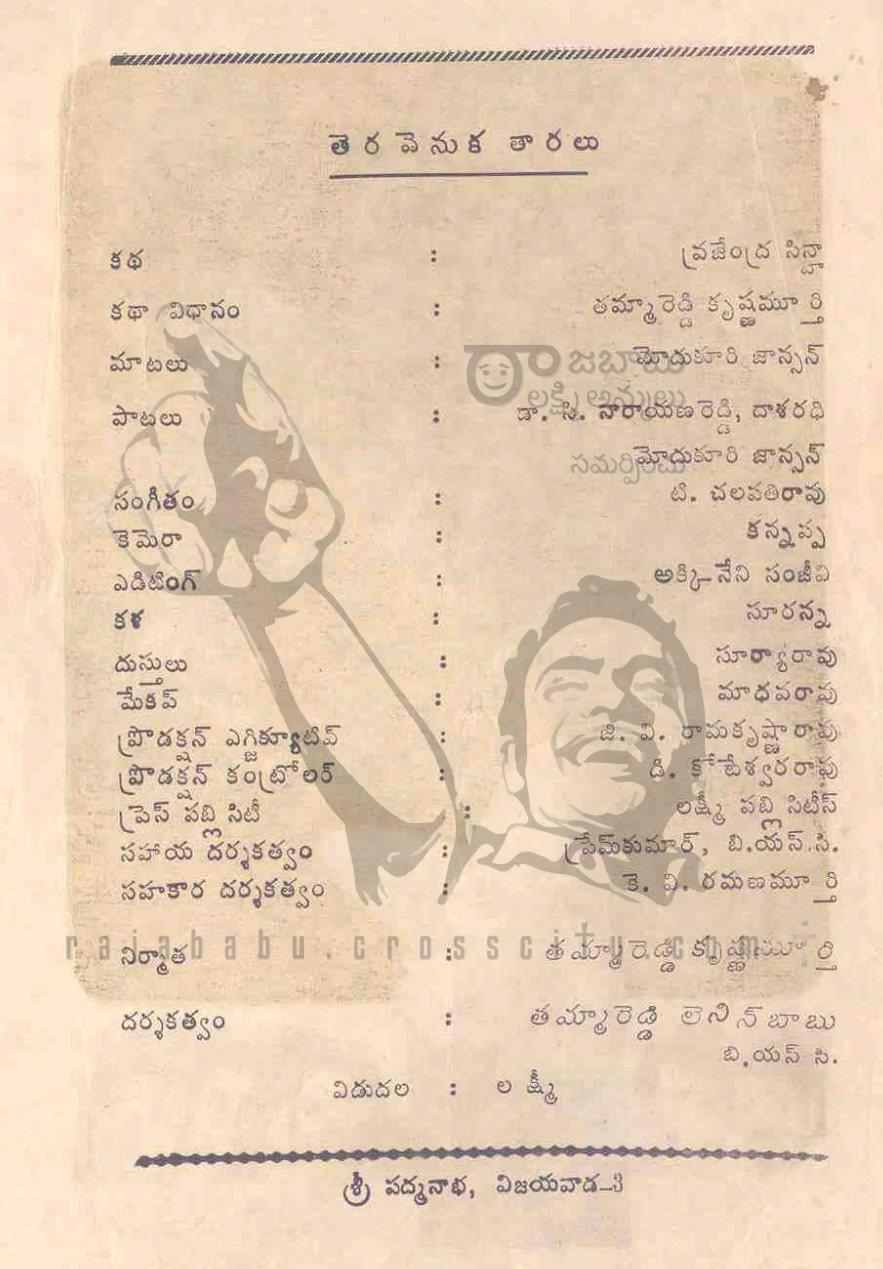 తెర వెనుక తారలు
కథ : వ్రజేంద్ర సిన్హా
కథా విధానం : తమ్మారెడ్డి కృష్ణమూర్తి
మాటలు : మోదుకూరి జాన్సన్
పాటలు : డా. సి. నారాయణరెడ్డి, దాశరథి
మోదుకూరి జాన్సన్
సంగీతం : టి. చలపతిరావు
కెమెరా : కన్నప్ప
ఎడిటింగ్ : అక్కినేని సంజీవి
కళ : సూరన్న
దుస్తులు : సూర్యారావు
మేకప్ : మాధవరావు
ప్రొడక్షన్ ఎగ్జిక్యూటివ్ : జి. వి. రామకృష్ణారావు
ప్రొడక్షన్ కంట్రోలర్ : డి. కోటేశ్వరరావు
ప్రెస్ పబ్లిసిటీ : లక్ష్మీ పబ్లిసిటీస్
సహాయ దర్శకత్వం : ప్రేమ్‌కుమార్, బి.యస్.సి.
సహకార దర్శకత్వం : కె. వి. రమణమూర్తి
నిర్మాత : తమ్మారెడ్డి కృష్ణమూర్తి
దర్శకత్వం : తమ్మారెడ్డి లెనిన్‌బాబు
బి.యస్ సి.
విడుదల : లక్ష్మీ
శ్రీ పద్మనాభ, విజయవాడ-3
రాజబాబు
లక్ష్మి అమ్ములు
సమర్పించు
rajababu.crosscity.com